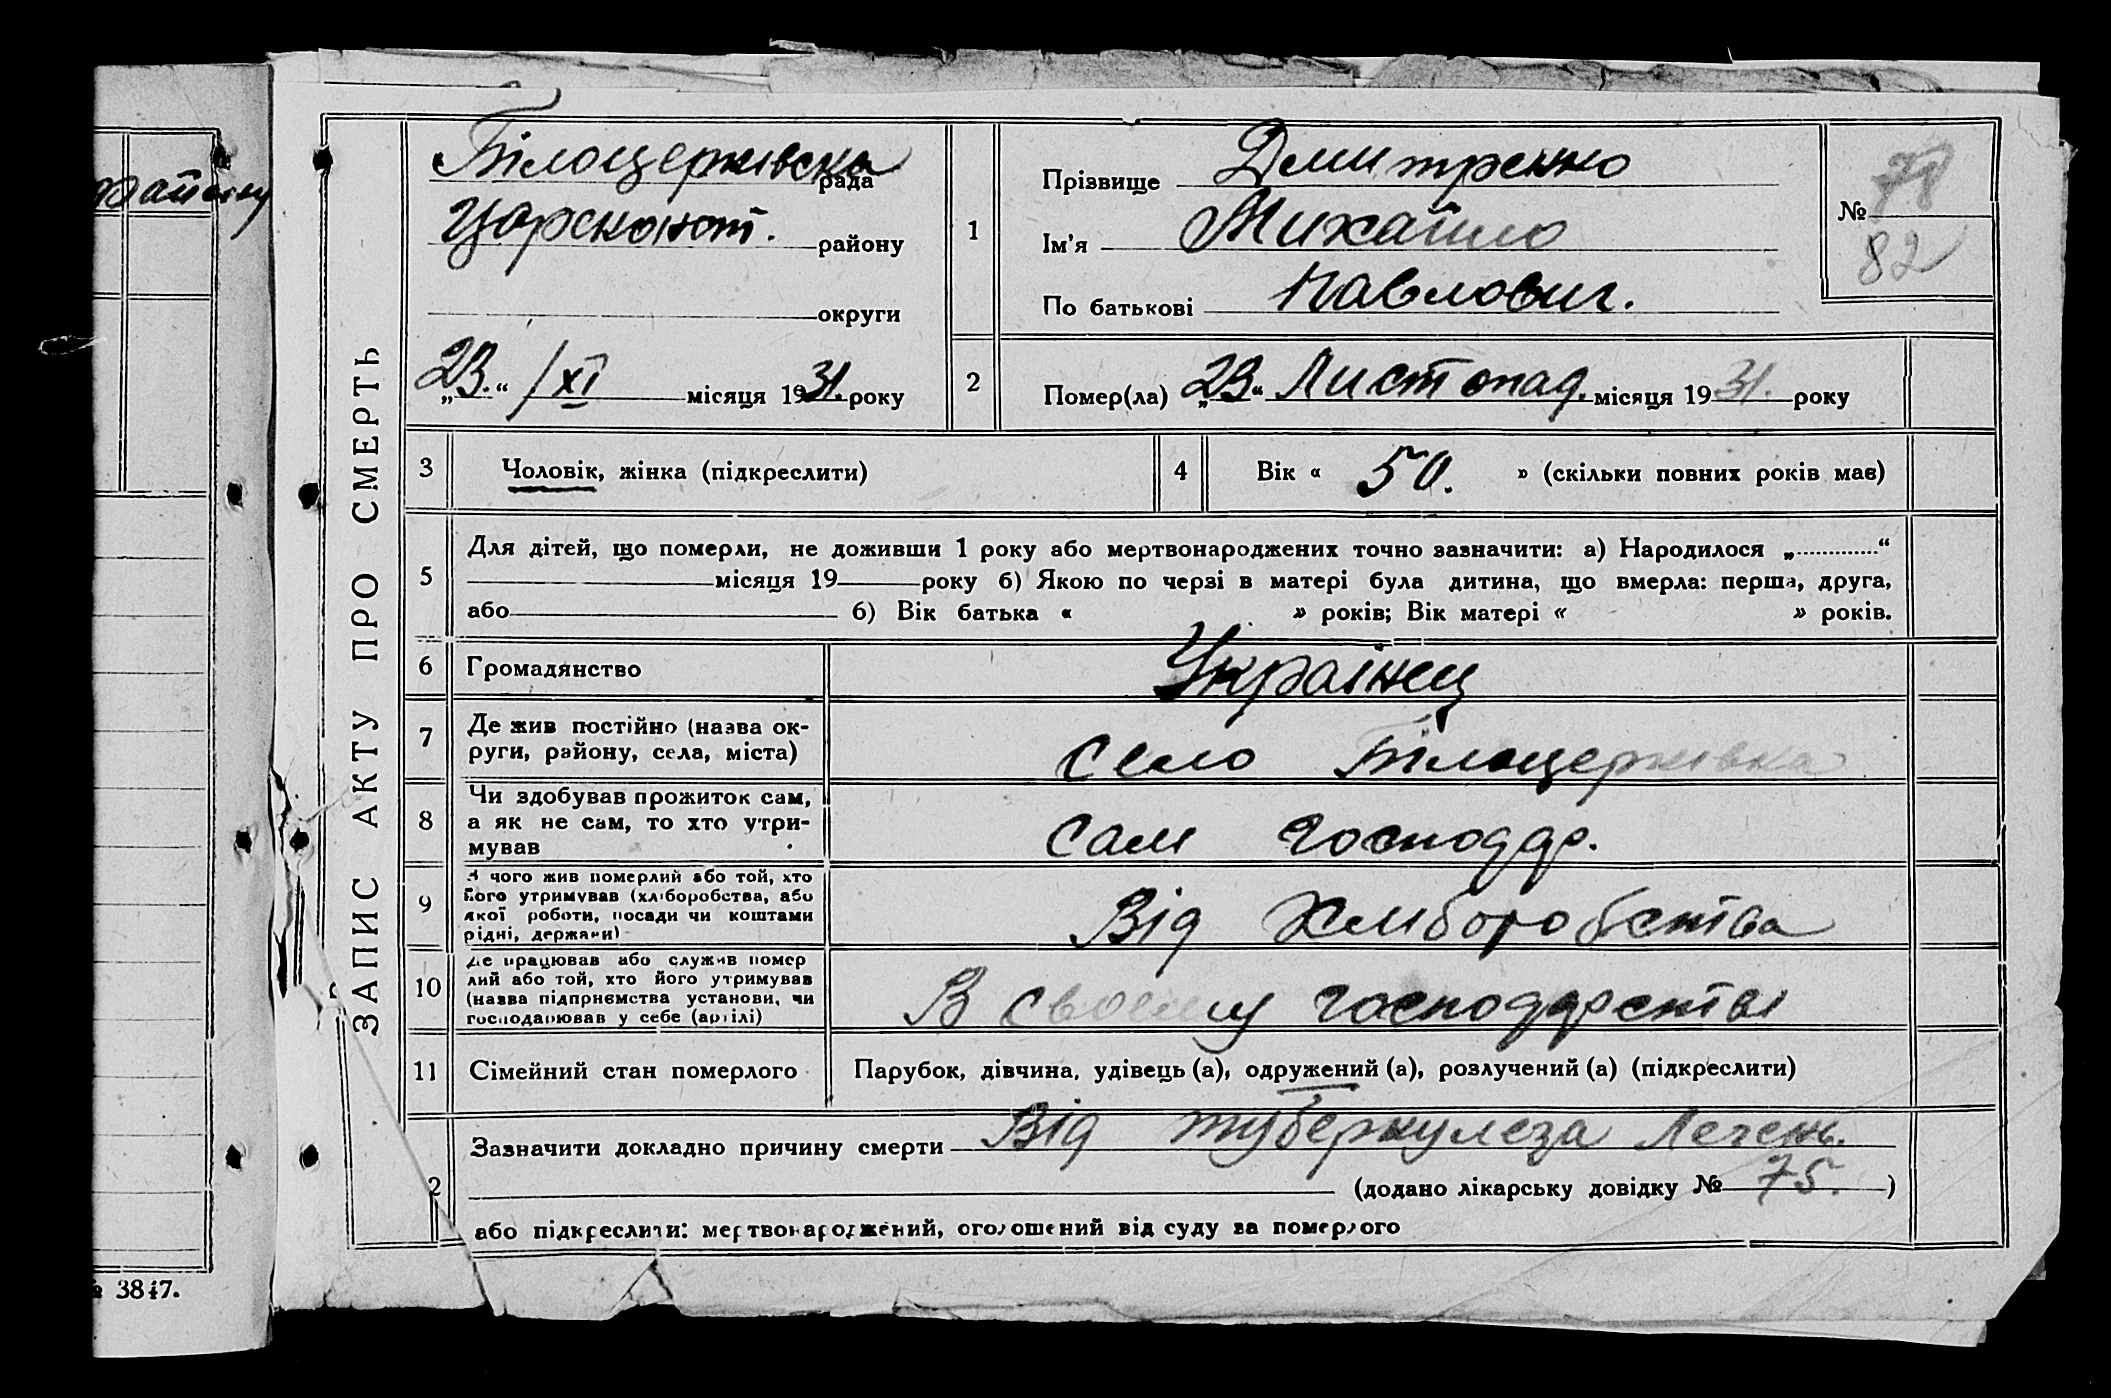 ЗАПИС АКТУ ПРО СМЕРТЬ
Білоцерківска рада
району
округи
„23.“ /XI місяця 1931. року
1
Прізвище Дмитренко
Ім'я Михайло
По батькові Павлович.
№ 78
82
2
Помер(ла) „23“ Листопад. місяця 1931. року
3
Чоловік, жінка (підкреслити)
4
Вік « 50. » (скільки повних років мав)
5
Для дітей, що померли, не доживши 1 року або мертвонароджених точно зазначити: а) Народилося „............“
місяця 19 року б) Якою по черзі в матері була дитина, що вмерла: перша, друга,
або б) Вік батька « » років; Вік матері « » років.
6
Громадянство Українец
7
Де жив постійно (назва ок-
руги, району, села, міста)
село Білоцерківка
8
Чи здобував прожиток сам,
а як не сам, то хто утри-
мував
Сам господар.
9
З чого жив померлий або той, хто
його утримував (хліборобства, або
якої роботи, посади чи коштами
рідні, держави)
Від Хліборобства
10
Де працював або служив помер
лий або той, хто його утримував
(назва підприємства установи, чи
господарював у себе (артілі)
В своему господарстві
11
Сімейний стан померлого
Парубок, дівчина, удівець (а), одружений (а), розлучений (а) (підкреслити)
2
Зазначити докладно причину смерти Від туберкулеза Легень.
(додано лікарську довідку № 75. )
або підкреслити: мертвонароджений, оголошений від суду за померлого
3847.